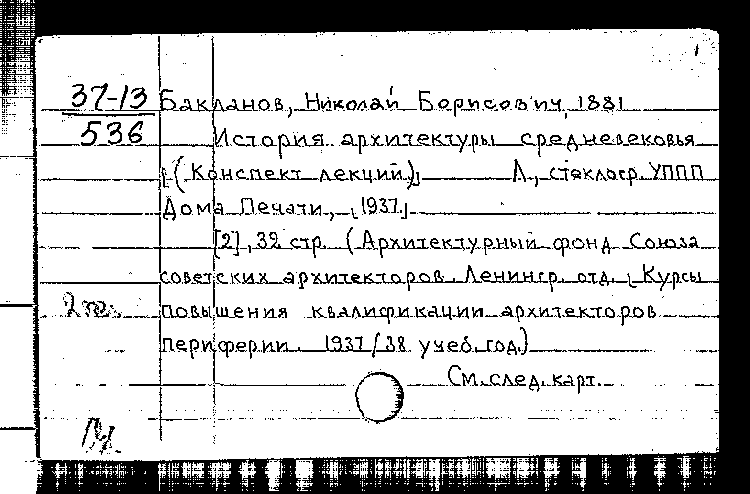 37-13 Бакланов, Николай Борисович, 1881
536 История архитектуры средневековья
(Конспект лекций) Л., стеклогр. УППП
Дома Печати, [1937]
[2], 32 стр. (Архитектурный фонд Союза
советских архитекторов. Ленингр. отд. Курсы
повышения квалификации архитекторов
периферии. 1937/38 учеб. год.)
См. след. карт.